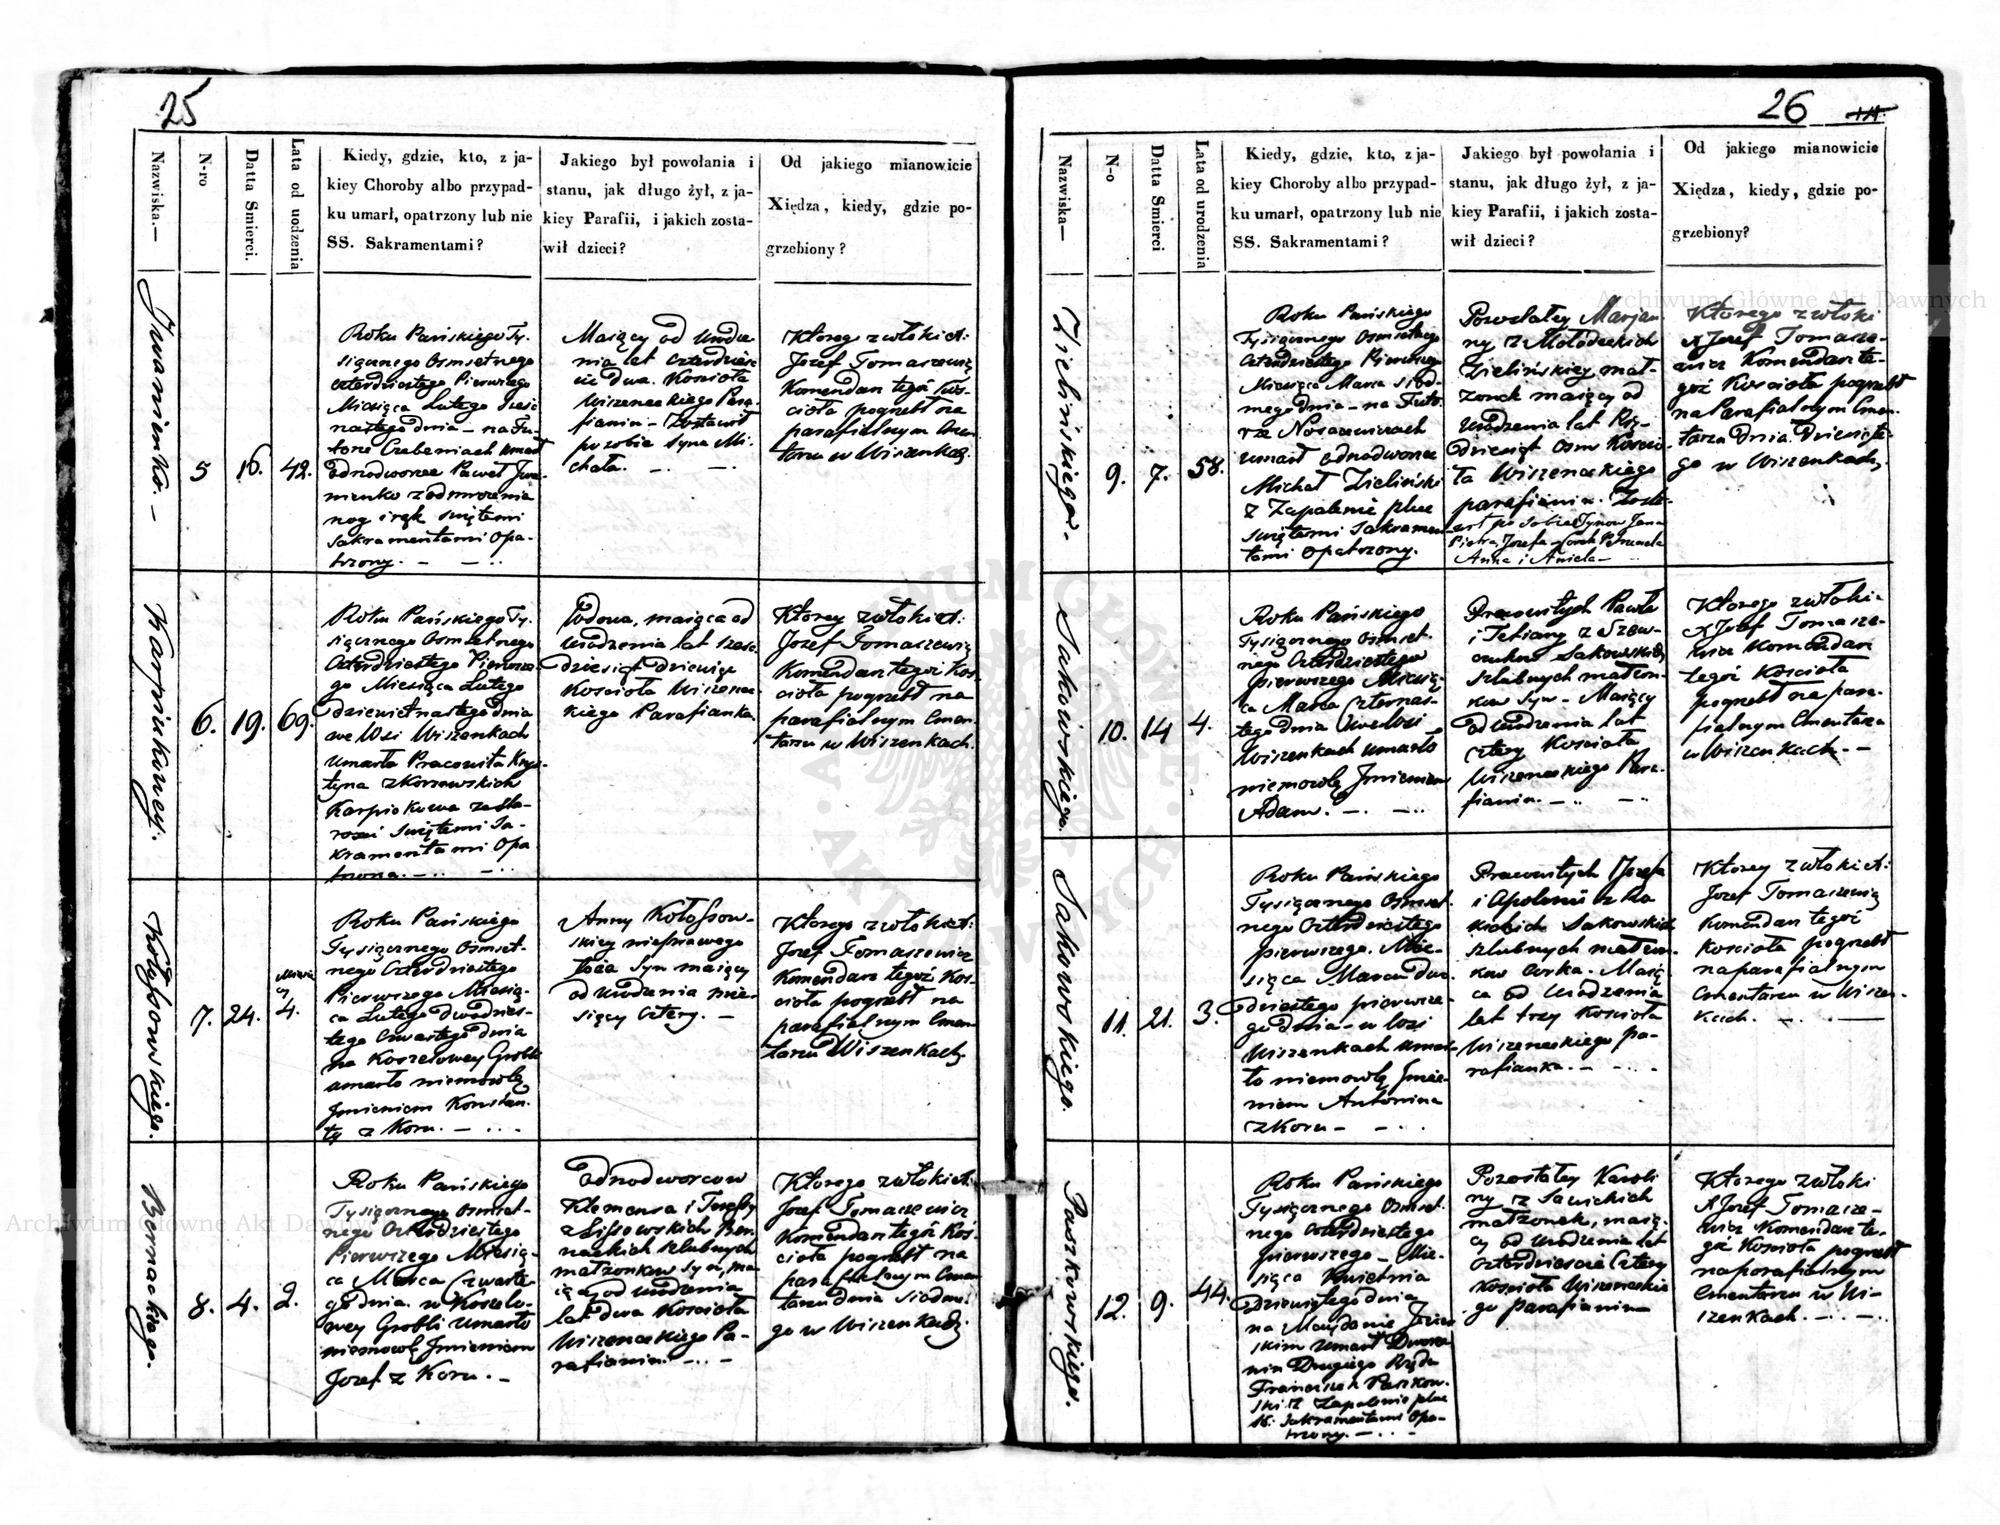 25
Nazwiska.—
N-ro
Datta Smierci.
Lata od uodzenia
Kiedy, gdzie, kto, z ja-
kiey Choroby albo przypad-
ku umarł, opatrzony lub nie
SS. Sakramentami?
Jakiego był powołania i
stanu, jak długo żył, z ja-
kiey Parafii, i jakich zosta-
wił dzieci?
Od jakiego mianowicie
Xiędza, kiedy, gdzie po-
grzebiony?
Iwanienko. —
5
16.
42.
Roku Pańskiego Ty-
siącznego Osmsetnego
czterdziestego Pierwszego
Miesiąca Lutego Szesć
nastego dnia – na Fu-
torze Czebeniach umarł
Odnodworzec Paweł Iwa-
nienko z odmrożenia
nog i rąk swiętemi
Sakramentami Opa-
trzony. — — ..
Maiący od Urodze-
nia lat czterdzieś-
ci dwa. Kościoła
Wiszenackiego Para-
fianin – Zostawił
po sobie syna Mi-
chała. —
Ktorego zwłoki X:
Jozef Tomaszewicz
Komendarz tegoż Koś-
cioła pogrzebł na
parafialnym Cmen-
tarzu w Wiszenkach
Karpiukowey.
6.
19.
69.
Roku Pańskiego Ty-
siącznego Osmsetnego
Czterdziestego Pierwsze-
go Miesiąca Lutego
dziewietnastego dnia
we Wsi Wiszenkach
umarła Pracowita Krys-
tyna z Korzewskich
Karpiukowa ze Sta-
rosci Swiętemi Sa-
kramentami Opa-
trzona. —..
Wdowa, maiąca od
Urodzenia lat szesć-
dziesiąt dziewięć
Kościoła Wiszenac-
kiego Parafianka.
Ktorey zwłoki X:
Jozef Tomaszewicz
Komendarz tegoż Koś-
cioła pogrzebł na
parafialnym Cmen-
tarzu w Wiszenkach.
Kołossowskiego.
7.
24.
4.
Roku Pańskiego
Tysiącznego Osmset-
nego Czterdziestego
Pierwszego Miesią-
ca Lutego Dwodzies-
tego Czwartego dnia
na Koszelowey Grobli
umarło niemowlę
Imieniem Konstan-
ty z Koru. — ...
Anny Kołossow-
skiey nieprawego
Łoża Syn maiący
od Urodzenia mie-
sięcy cztery. —
Ktorego zwłoki X:
Jozef Tomaszewicz
Komendarz tegoż Koś-
cioła pogrzebł na
parafialnym Cmen-
tarzu Wiszenkach
Bernackiego.
8.
4.
2.
Roku Pańskiego
Tysiącznego Osmset-
nego Czterdziestego
Pierwszego Miesią-
ca Marca Czwarte-
go dnia w Koszelo-
wey Grobli umarło
niemowlę Imieniem
Jozef z Koru. —
Odnodworcow
Klemensa i Teressy
z Lissowskich Ber-
nackich szlubnych
małżonkow Syn, ma-
iący od urodzenia
lat dwa Kościoła
Wiszenackiego Pa-
rafianin. — .. —
Ktorego zwłoki X:
Jozef Tomaszewicz
Komendarz tegoż Koś-
cioła pogrzebł na
parafialnym Cmen-
tarzu dnia siodme-
go w Wiszenkach
26
Nazwiska—
N-o
Datta Smierci
Lata od urodzenia
Kiedy, gdzie, kto, z ja-
kiey Choroby albo przypad-
ku umarł, opatrzony lub nie
SS. Sakramentami?
Jakiego był powołania i
stanu, jak długo żył, z ja-
kiey Parafii, i jakich zosta-
wił dzieci?
Od jakiego mianowicie
Xiędza, kiedy, gdzie po-
grzebiony?
Zielińskiego.
9.
7.
58.
Roku Pańskiego
Tysiącznego Osmsetnego
Czterdziestego Pierwszego
Miesiąca Marca siod-
mego dnia – na Futo-
rze Nosaczewiczach
umarł odnodworzec
Michał Zieliński
z Zapalenie płuc
swiętemi Sakramen-
tami Opatrzony.
Pozostałey Marjan-
ny z Mołodeckich
Zielińskiey mał-
żonek maiący od
Urodzenia lat Pię-
dziesiąt osm Kościo-
ła Wiszenackiego
parafianin. Zosta-
wił po sobie Synow Jana
Piotra, Jozefa – Corek Petronela
Anna i Aniela—
Ktorego zwłoki
X Jozef Tomasze-
wicz Komendarz te-
goż Kościoła pogrzebł
na Parafialnym Cmen-
tarzu dnia Dziewiąte-
go w Wiszenkach.
Sakowskiego.
10.
14
4.
Roku Pańskiego
Tysiącznego Osmset-
nego Czterdziestego
pierwszego Miesią-
ca Marca Czternas-
tego dnia we wsi
Wiszenkach umarło
niemowlę Imieniem
Adam. —. — ..
Pracowitych Pawła
i Tetiany z Szew-
czukow Sakowskich
szlubnych małżon-
kow Syn – Maiący
od Urodzenia lat
cztery Kościoła
Wiszenackiego Para-
fianin. — .. — ..
Ktorego zwłoki
X Jozef Tomasze-
wicz Komendarz
tegoż Kościoła
pogrzebł na para-
fialnym Cmentarzu
w Wiszenkach. —
Sakowskiego.
11.
21.
3.
Roku Pańskiego
Tysiącznego Osmset-
nego Czterdziestego
pierwszego. Mie-
siąca Marca dwu-
dziestego pierwsze-
go dnia – w wsi
Wiszenkach umar-
ło niemowlę Imie-
niem Antonina
z Koru — — ..
Pracowitych Jozefa
i Apolonii z Ra-
Sakowskich
szlubnych małżon-
kow Corka. Maią-
ca od Urodzenia
lat trzy Kościoła
Wiszenackiego pa-
rafianka. — ..
Ktorey zwłoki X:
Jozef Tomaszewicz
Komendarz tegoż
Kościoła pogrzebł
na parafialnym
Cmentarzu w Wiszen-
kach. — . —
Paszkowskiego.
12.
9.
44.
Roku Pańskiego
Tysiącznego Osmset-
nego czterdziestego
pierwszego – Mie-
siąca Kwietnia
Dziewiątego dnia
na Maydanie
skim umarł Dworza-
nin Drugiego Rzędu
Franciszek Paszkow-
ski z Zapalenie płuc
SS. Sakramentami Opa-
trzony. — . .. —
Pozostałey Karoli
ny z Sawickich
małżonek, maią-
cy od Urodzenia lat
czterdziescie Cztery
Kościoła Wiszenackie
go parafianin
Ktorego zwłoki
X Jozef Tomasze-
wicz Komendarz te-
goż Kościoła pogrzebł
na parafialnym
Cmentarzu w Wi-
szenkach. — . .. —
Archiwum Główne Akt Dawnych
Archiwum Główne Akt Dawnych
ARCHIWUM GŁÓWNE AKT DAWNYCH